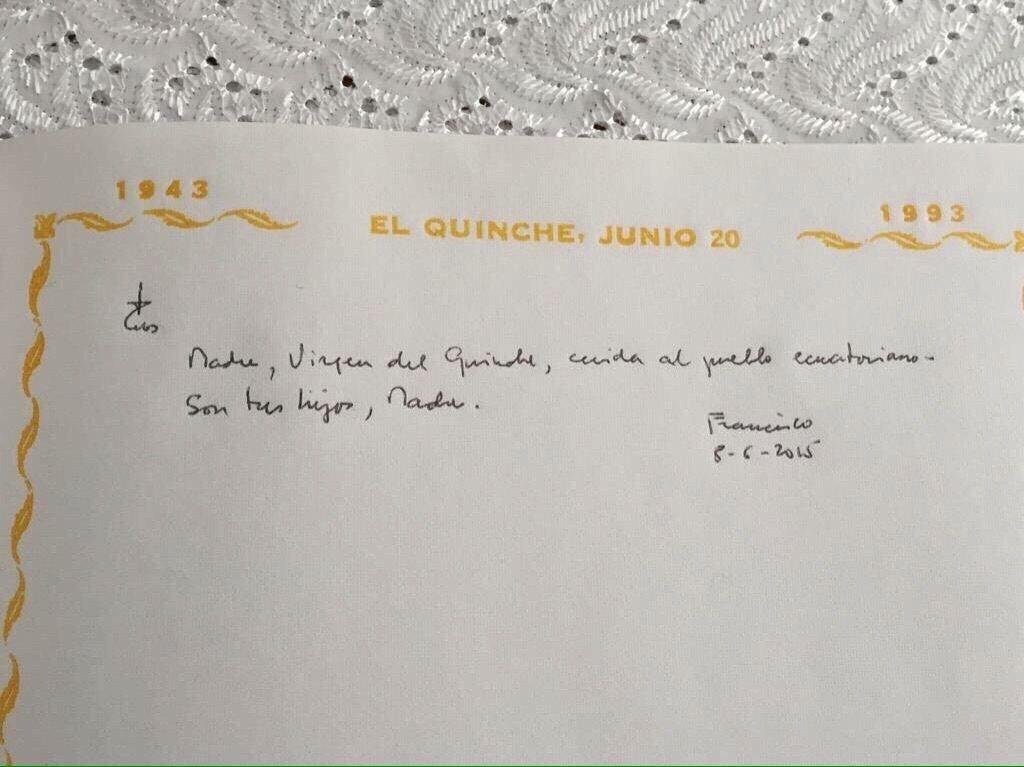 1943 EL QUINCHE, JUNIO 20 1993
Madre, Virgen del Quinche, cuida al pueblo ecuatoriano.
Son tus hijos, Madre.
Francisco
8-6-2015